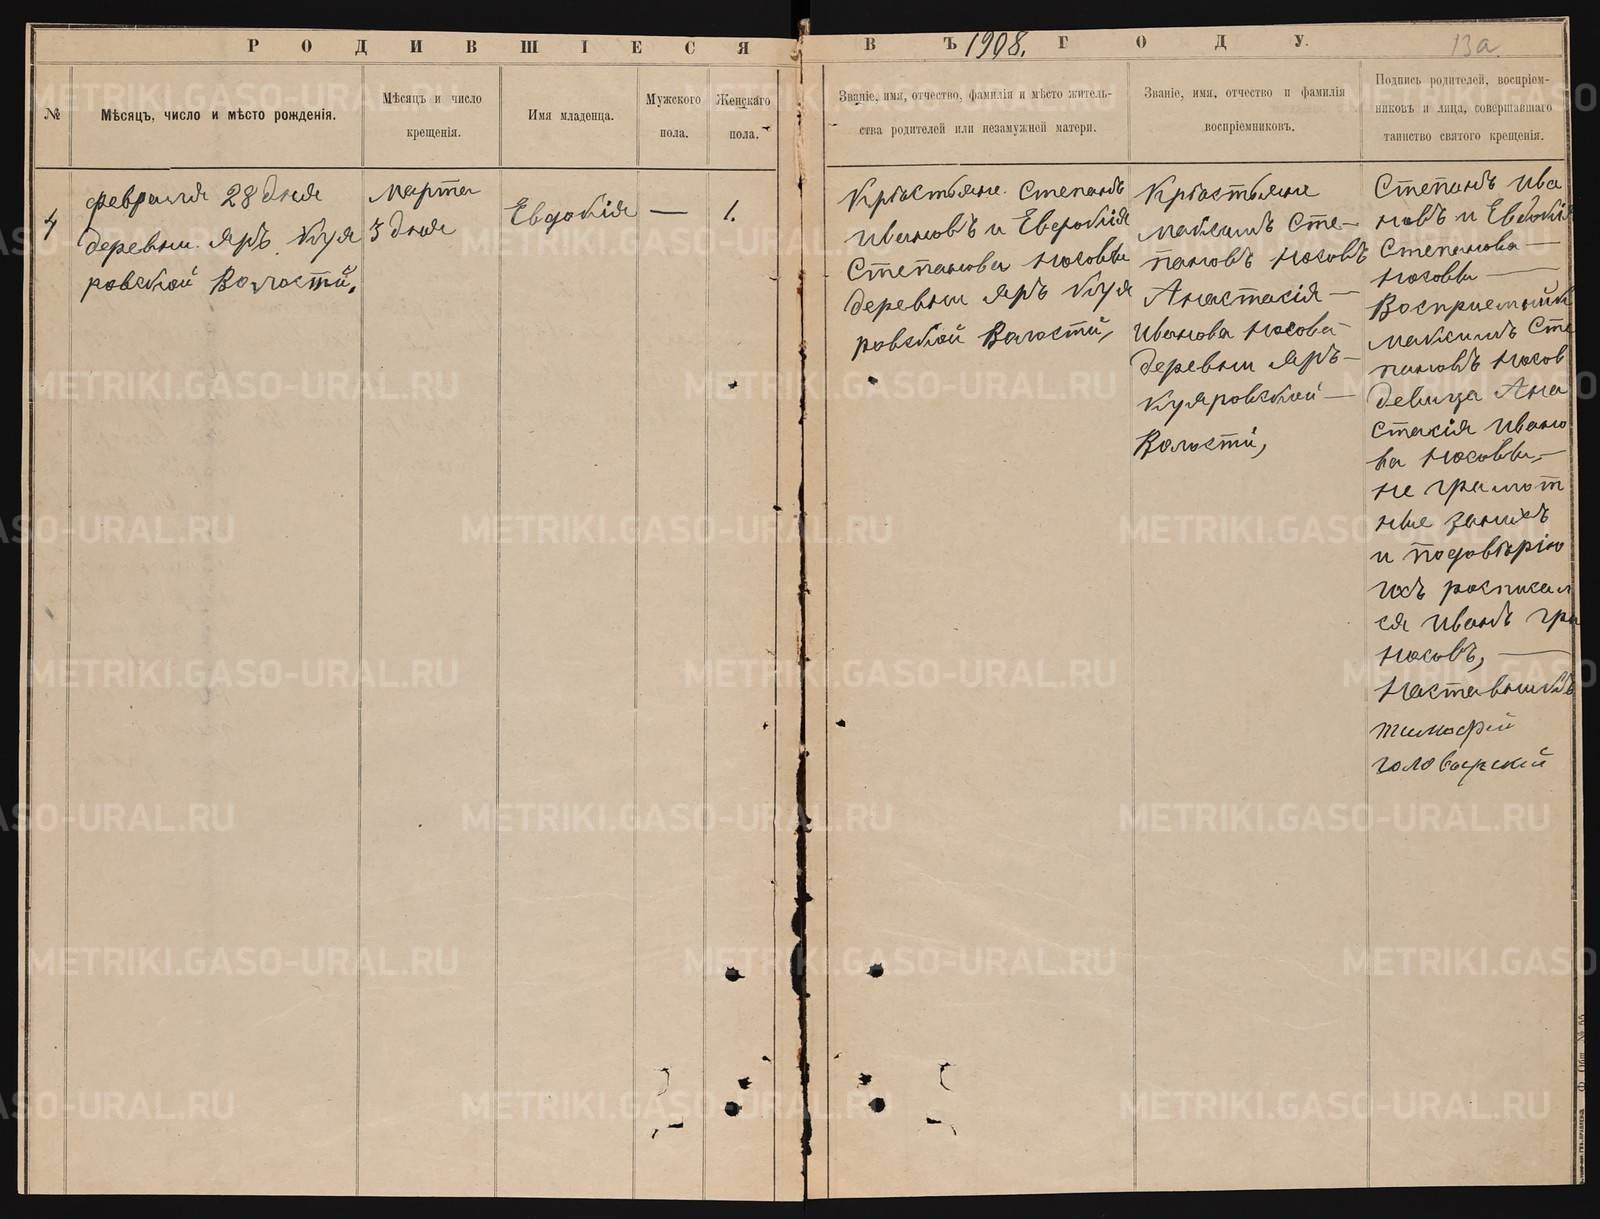 РОДИВШІЕСЯ
ВЪ 1908. ГОДУ.
13а
№
Мѣсяцъ, число и мѣсто рожденія.
Мѣсяцъ и число
крещенія.
Имя младенца.
Мужского
пола.
Женскаго
пола.
Званіе, имя, отчество, фамилія и мѣсто житель-
ства родителей или незамужней матери.
Званіе, имя, отчество и фамилія
воспріемниковъ.
Подпись родителей, воспріем-
никовъ и лица, совершавшаго
таинство святого крещенія.
4
февраля 28 дня
деревни. Яръ. Куя
ровской Волости,
Марта
3 дня
Евдокія
—
1.
Крѣстьяне. Степанъ
Ивановъ и Евдокія
Степанова Носовы
деревни Яръ Куя
ровской Волости,
Крѣстьяне
Максимъ Сте-
пановъ Носовъ
Анастасія —
Иванова Носова
деревни Яръ-
Куяровской —
Волости,
Степанъ Ива
новъ и Евдокія
Степанова —
Носовы —
Восприемник
Максимъ Сте
пановъ Носов
девица Ана
стасія Ивано
ва Носовы,—
не грамот
ные занихъ
и подовѣрію
ихъ росписал
ся Иванъ Гри
Носовъ, —
Наставникъ
Тимофей
METRIKI.GASO-URAL.RU